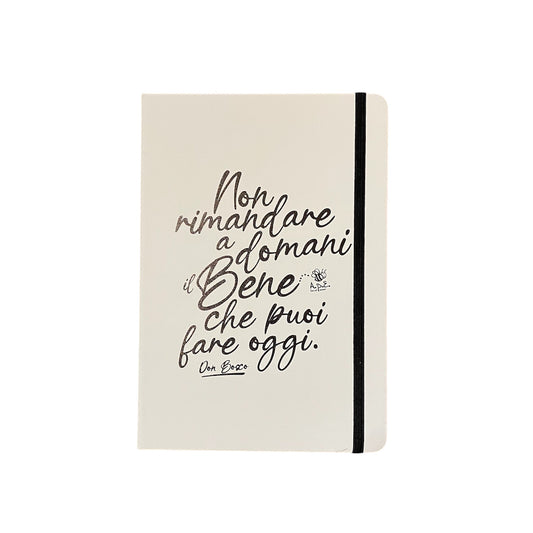 Non
rimandare
a domani
il Bene
che puoi
fare oggi.
Don Bosco